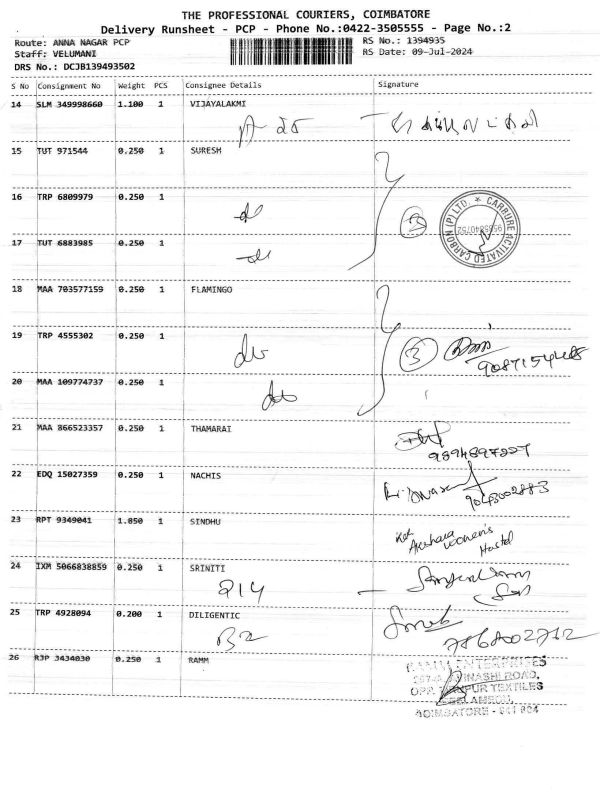 THE PROFESSIONAL COURIERS, COIMBATORE
Delivery Runsheet - PCP - Phone No.:0422-3505555 - Page No.:2
Route: ANNA NAGAR PCP
Staff: VELUMANI
DRS No.: DCJB139493502
RS No.: 1394935
RS Date: 09-Jul-2024
S No Consignment No Weight PCS Consignee Details Signature
14 SLM 349998660 1.100 1 VIJAYALAKMI
15 TUT 971544 0.250 1 SURESH
16 TRP 6809979 0.250 1
3
CARBURE ACTIVATED CARBON (P) LTD.
17 TUT 6883985 0.250 1
18 MAA 703577159 0.250 1 FLAMINGO
19 TRP 4555302 0.250 1
3
20 MAA 109774737 0.250 1
21 MAA 866523357 0.250 1 THAMARAI
9894897227
22 EDQ 15027359 0.250 1 NACHIS
9043002883
23 RPT 9349041 1.050 1 SINDHU
women's
Hostel
24 IXM 5066838859 0.250 1 SRINITI
214
25 TRP 4928094 0.200 1 DILIGENTIC
B2
26 RJP 3434030 0.250 1 RAMM
ENTERPRISES
AVINASHI ROAD,
TEXTILES
COIMBATORE - 641 004